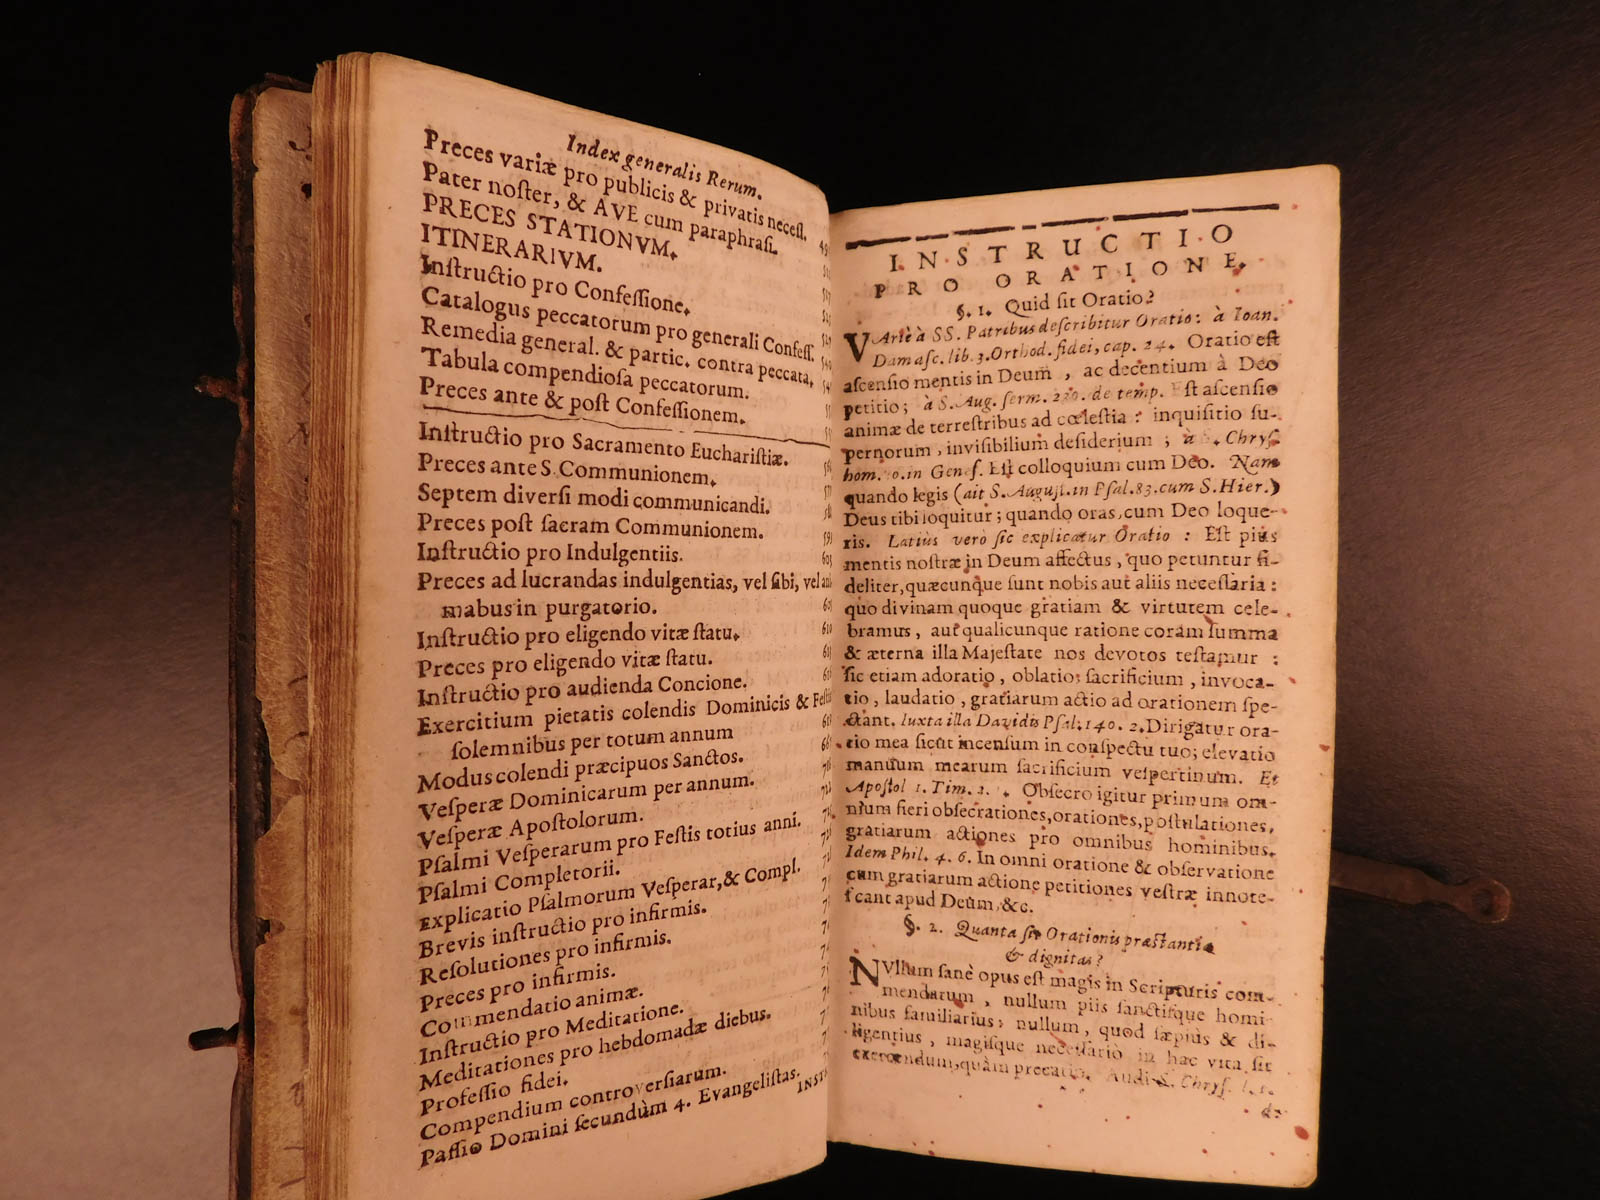 Index generalis Rerum.
Preces variæ pro publicis & privatis necess.
Pater noſter, & AVE cum paraphraſi.
PRECES STATIONVM.
ITINERARIVM.
Inſtructio pro Confeſſione.
Catalogus peccatorum pro generali Confeſſ.
Remedia general. & partic. contra peccata.
Tabula compendioſa peccatorum.
Preces ante & poſt Confeſſionem.
Inſtructio pro Sacramento Euchariſtiæ.
Preces ante S. Communionem.
Septem diverſi modi communicandi.
Preces poſt ſacram Communionem.
Inſtructio pro Indulgentiis.
Preces ad lucrandas indulgentias, vel ſibi, vel ani
mabus in purgatorio.
Inſtructio pro eligendo vitæ ſtatu.
Preces pro eligendo vitæ ſtatu.
Inſtructio pro audienda Concione.
Exercitium pietatis colendis Dominicis & Feſtis
ſolemnibus per totum annum
Modus colendi præcipuos Sanctos.
Veſperæ Dominicarum per annum.
Veſperæ Apoſtolorum.
Pſalmi Veſperarum pro Feſtis totius anni.
Pſalmi Completorii.
Explicatio Pſalmorum Veſperar, & Compl.
Brevis inſtructio pro infirmis.
Reſolutiones pro infirmis.
Preces pro infirmis.
Commendatio animæ.
Inſtructio pro Meditatione.
Meditationes pro hebdomadæ diebus.
Profeſſio fidei.
Compendium controverſiarum.
Paſſio Domini ſecundùm 4. Evangeliſtas.
INST
INSTRUCTIO
PRO ORATIONE.
§. 1. Quid ſit Oratio?
VArie à SS. Patribus deſcribitur Oratio: à Ioan.
Damaſc. lib. 3. Orthod. fidei, cap. 24. Oratio eſt
aſcenſio mentis in Deum, ac decentium à Deo
petitio; à S. Aug. ſerm. 230. de temp. Eſt aſcenſio
animæ de terreſtribus ad cœleſtia: inquiſitio ſu-
pernorum, inviſibilium deſiderium; à S. Chryſ.
hom. in Geneſ. Eſt colloquium cum Deo. Nam
quando legis (ait S. Auguſt. in Pſal. 83. cum S. Hier.)
Deus tibi loquitur; quando oras, cum Deo loque-
ris. Latiùs verò ſic explicatur Oratio: Eſt pius
mentis noſtræ in Deum affectus, quo petuntur fi-
deliter, quæcunque ſunt nobis aut aliis neceſſaria:
quo divinam quoque gratiam & virtutem cele-
bramus, aut qualicunque ratione coram ſumma
& æterna illa Majeſtate nos devotos teſtamur:
ſic etiam adoratio, oblatio, ſacrificium, invoca-
tio, laudatio, gratiarum actio ad orationem ſpe-
ctant. Iuxta illa Davidis Pſal. 140. 2. Dirigatur ora-
tio mea ſicût incenſum in conſpectu tuo; elevatio
manuum mearum ſacrificium veſpertinum. Et
Apoſtol 1. Tim. 2. Obſecro igitur primum om-
nium fieri obſecrationes, orationes, poſtulationes,
gratiarum actiones pro omnibus hominibus.
Idem Phil. 4. 6. In omni oratione & obſervatione
cum gratiarum actione petitiones veſtræ innote-
ſcant apud Deum, &c.
§. 2. Quanta ſit Orationis præſtantia
& dignitas?
NVllum ſanè opus eſt magis in Scripturis com-
mendatum, nullum piis ſanctiſque homi-
nibus familiarius; nullum, quod ſæpiùs & di-
ligentius, magiſque neceſſariò in hac vita ſit
exercendum, quàm precatio. Audi S. Chryſ. l. 1.
de